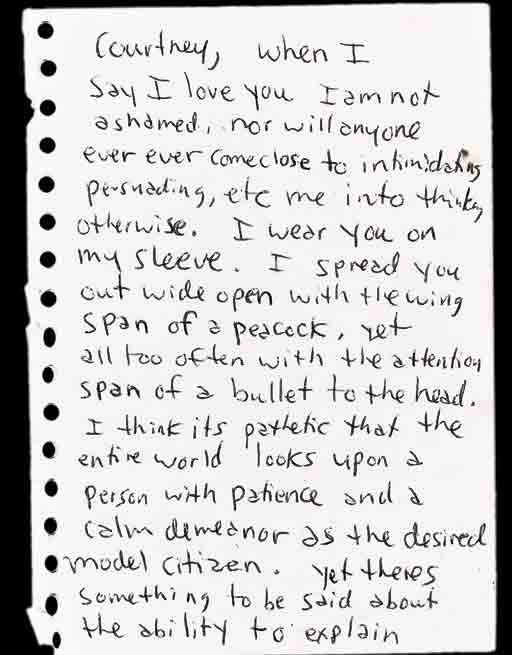 Courtney, when I
say I love you I am not
ashamed, nor will anyone
ever ever come close to intimidating
persuading, etc me into thinking
otherwise. I wear you on
my sleeve. I spread you
out wide open with the wing
span of a peacock, yet
all too often with the attention
span of a bullet to the head.
I think its pathetic that the
entire world looks upon a
person with patience and a
calm demeanor as the desired
model citizen. yet theres
something to be said about
the ability to explain